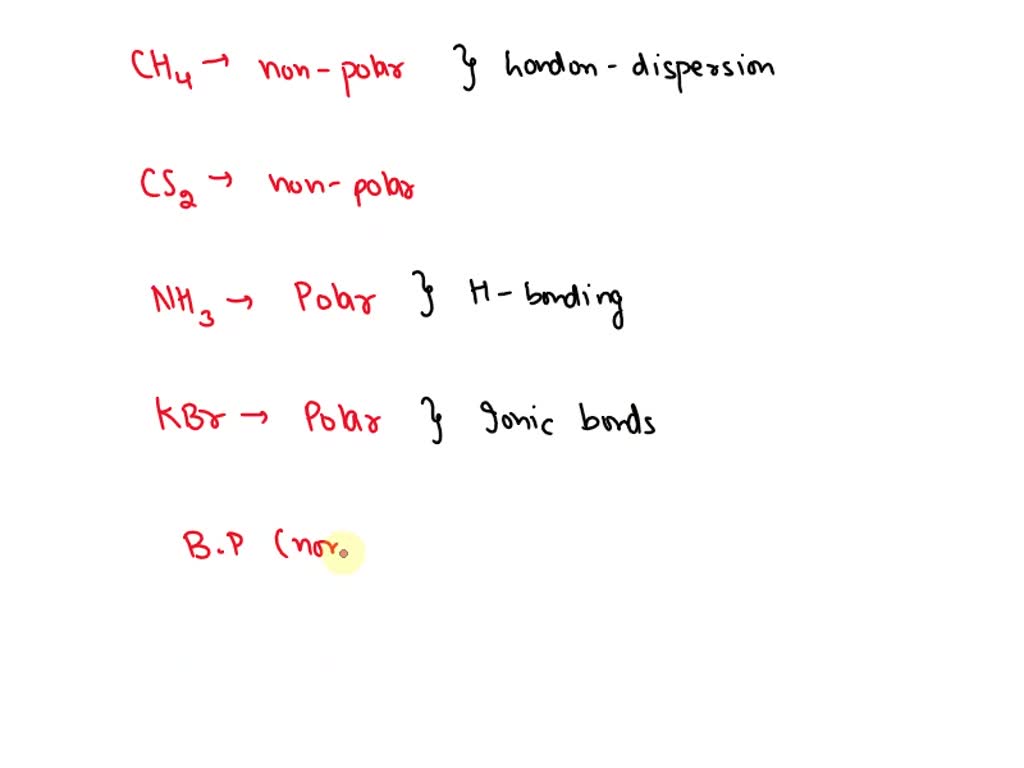 CH4 → non-polar } London - dispersion
CS2 → non-polar
NH3 → Polar } H-bonding
KBr → Polar } Ionic bonds
B.P (nor